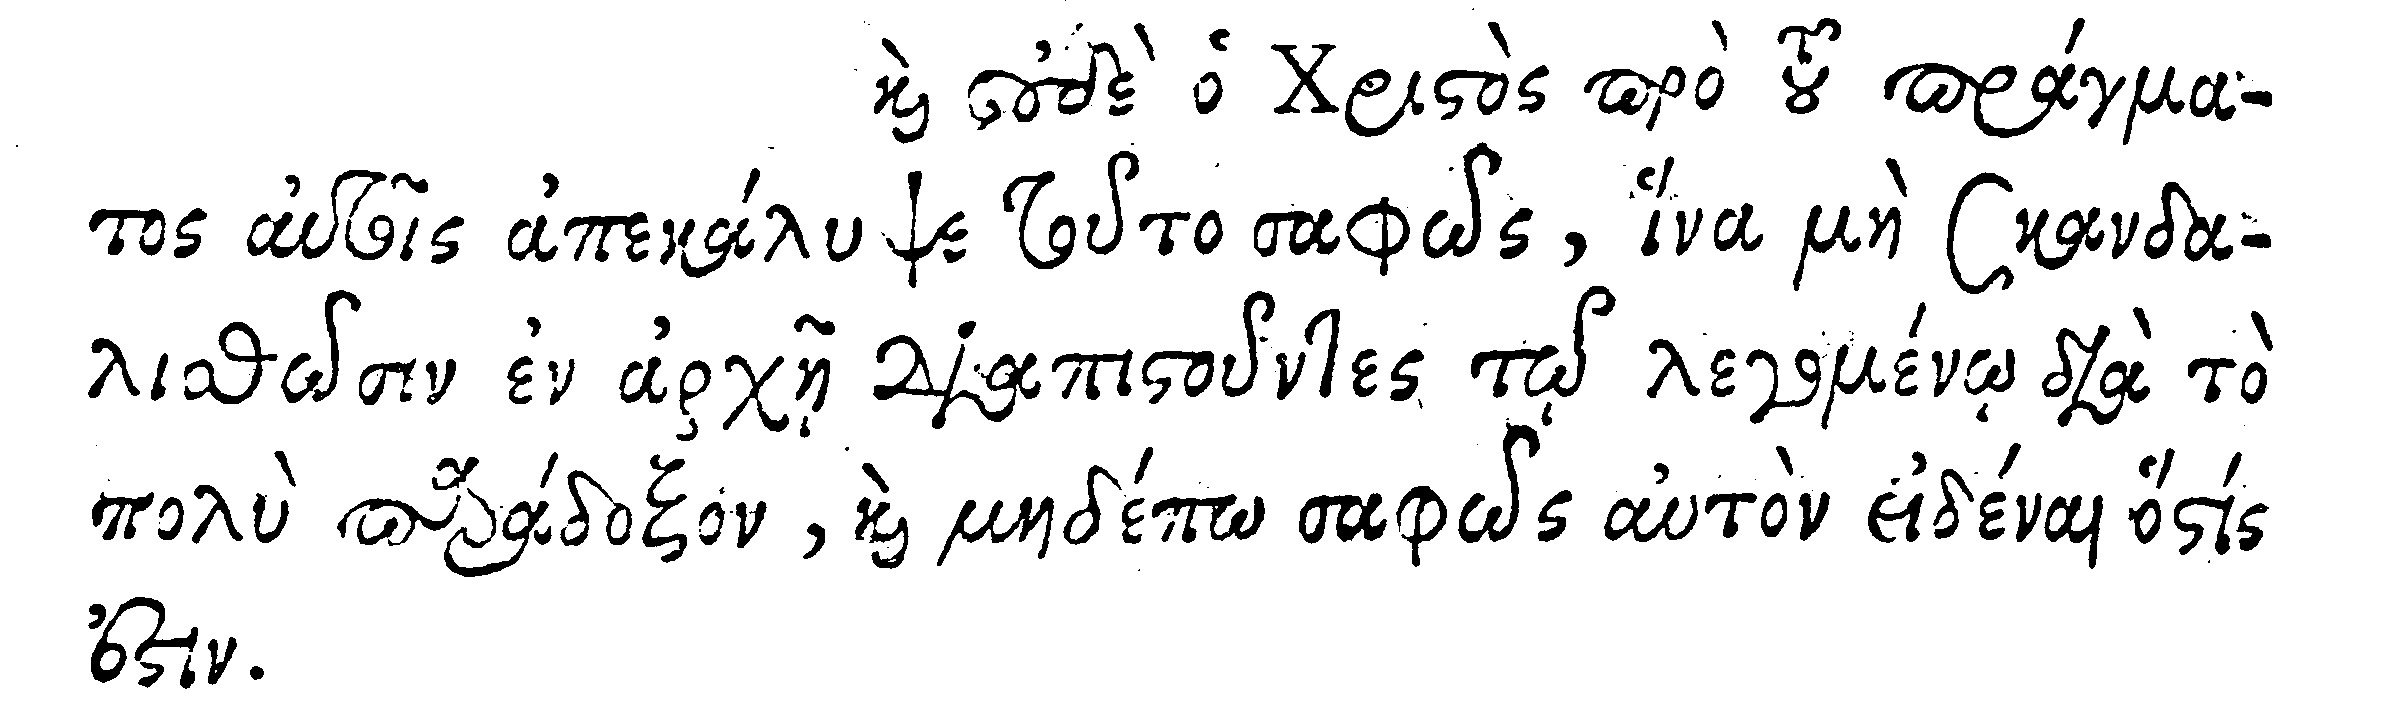 καὶ οὐδὲ ὁ Χριστὸς πρὸ τοῦ πράγμα-
τος αὐτοῖς ἀπεκάλυψε τοῦτο σαφῶς, ἵνα μὴ σκανδα-
λισθῶσιν ἐν ἀρχῇ διαπιστοῦντες τῷ λεγομένῳ διὰ τὸ
πολὺ παράδοξον, καὶ μηδέπω σαφῶς αὐτὸν εἰδέναι ὅστίς
ἐστιν.